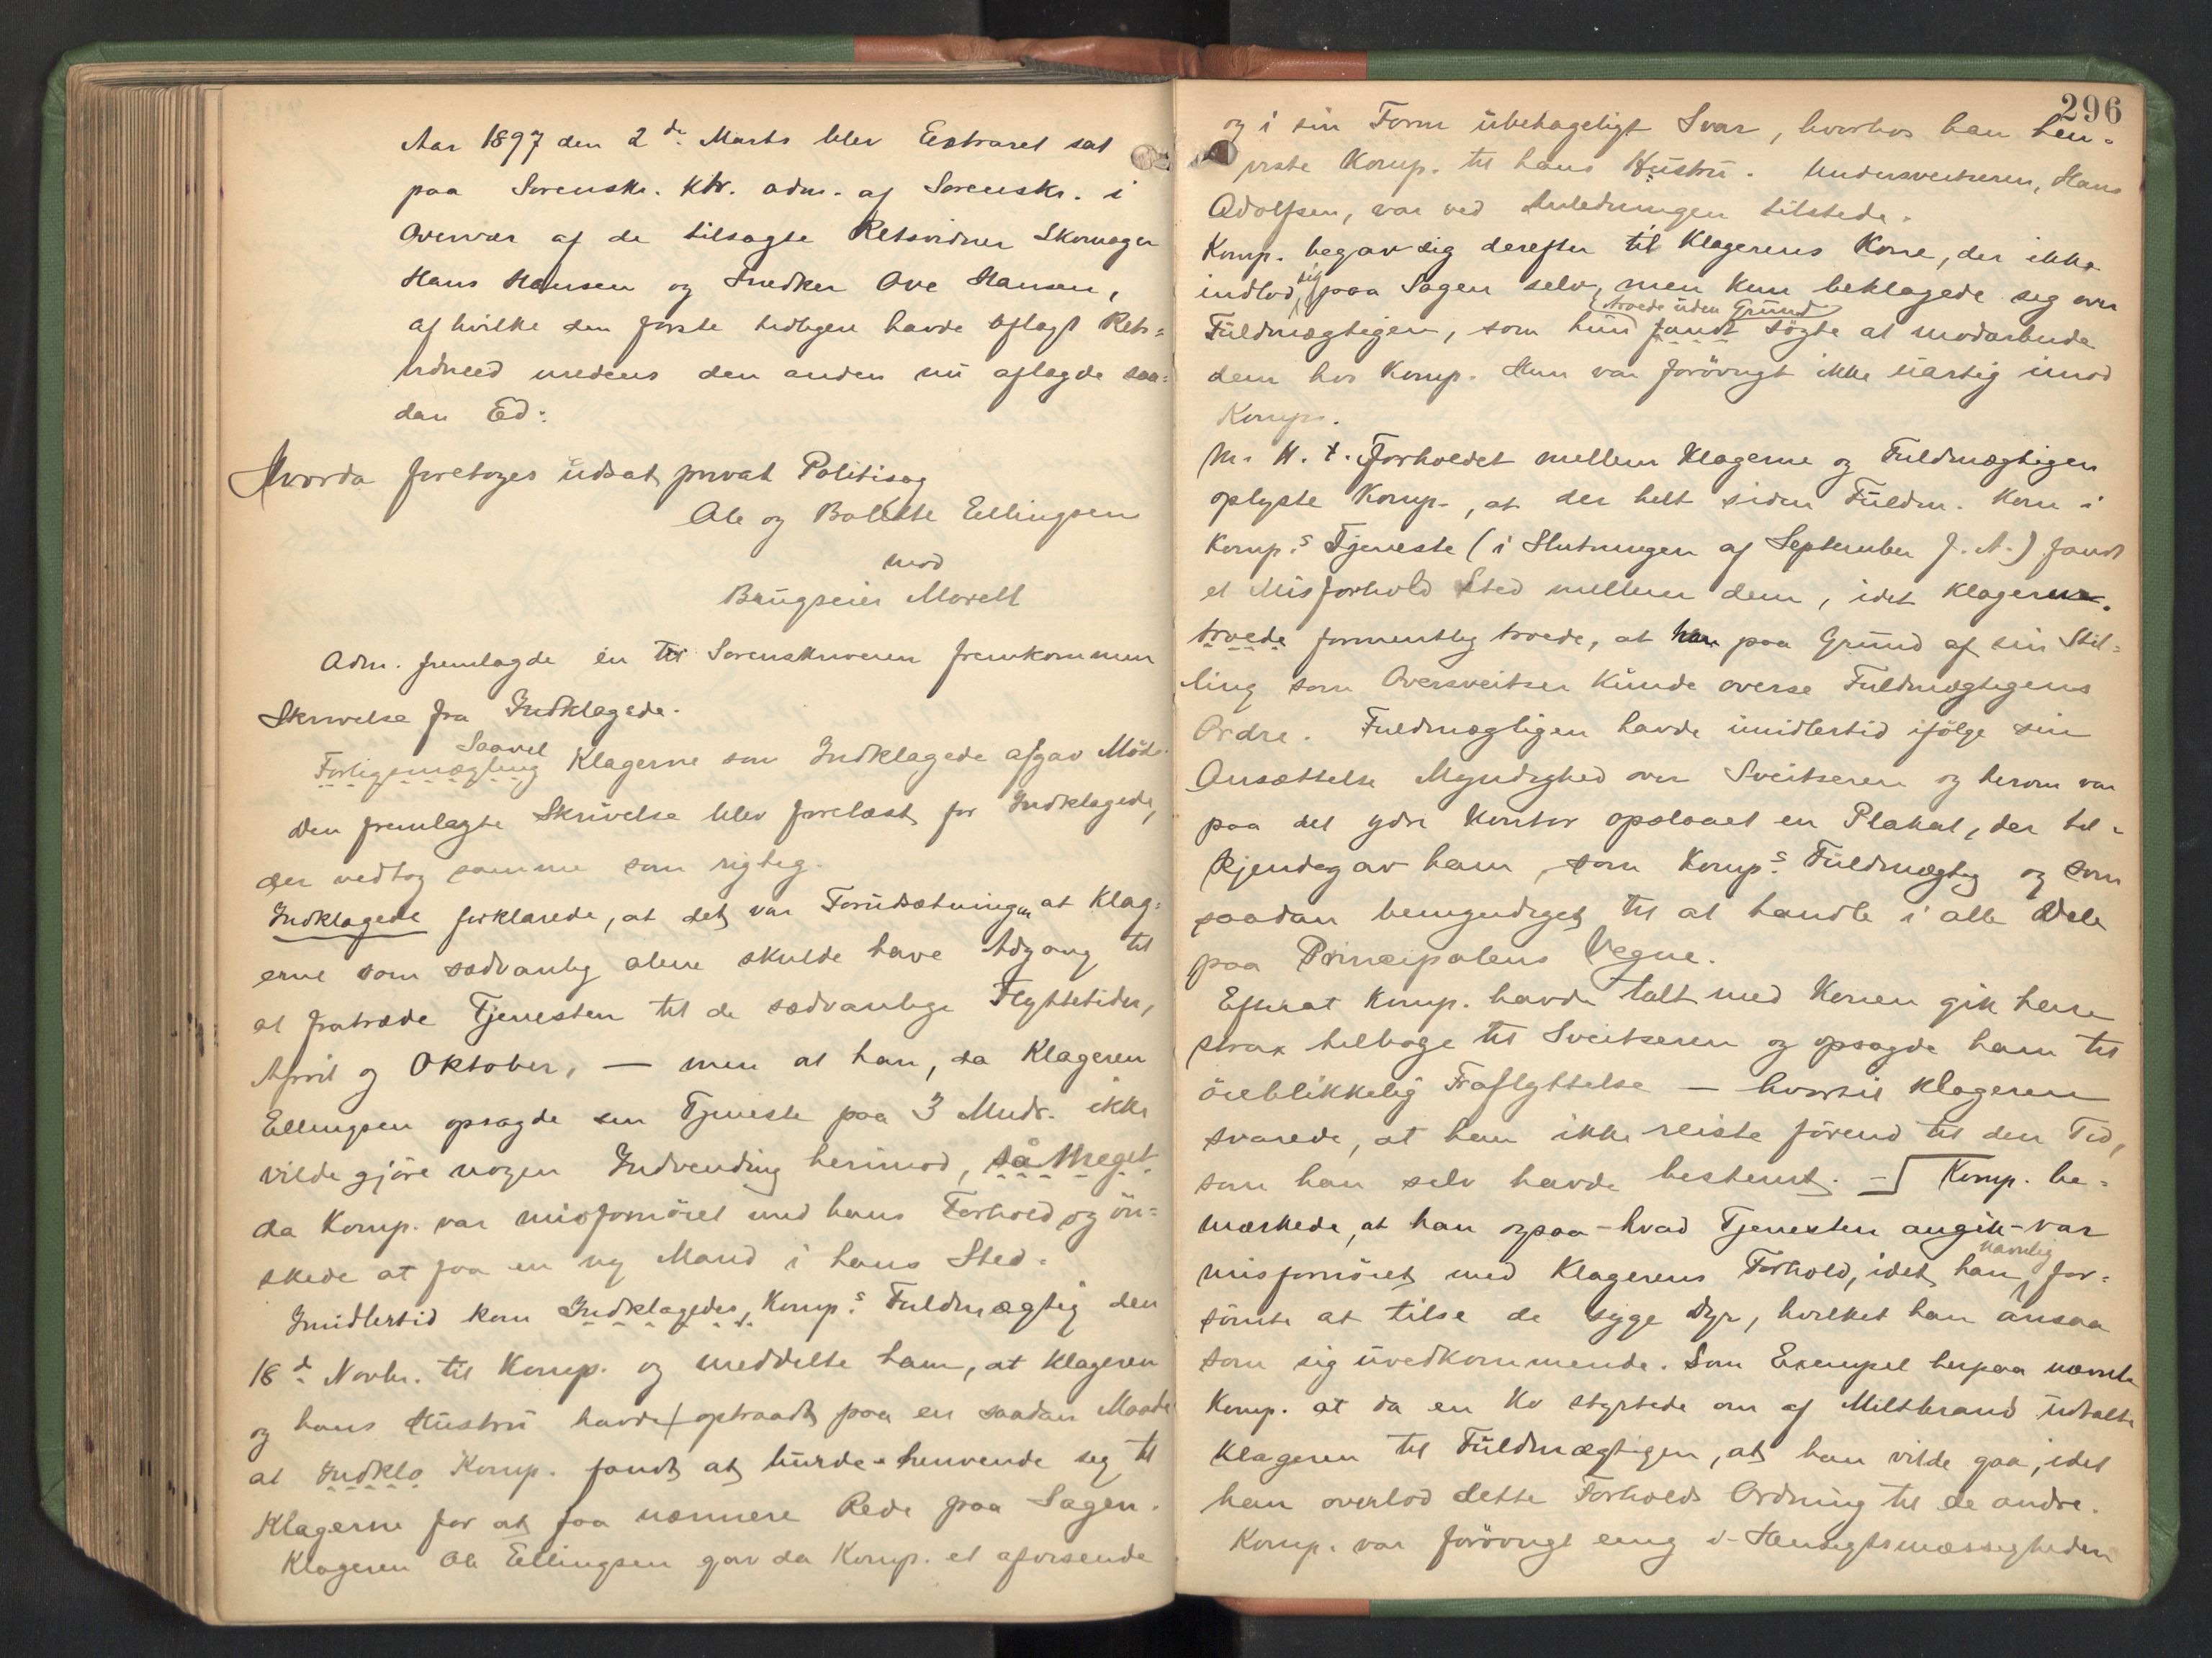 Aar 1897 den 2de Marts blev Extraret sat
paa Sorenskr. Ktr. adm. af Sorenskr. i
Overvær af de tilsagte Retsvidner Skomager
Hans Hansen og Snedker Ove Hansen,
af hvilke den første tidligere havde aflagt Rets=
vidneed medens den anden nu aflagde saa=
dan Ed:
Hvorda foretoges udsat privat Politisag
Ole og Bolette Ellingsen
mod
Brugseier Morell
Adm. fremlagde en til Sorenskriveren fremkommen
Skrivelse fra Indklagede.
Saavel
Forligsmægling Klagerne som Indklagede afgav Møde.
Den fremlagte Skrivelse blev forelæst for Indklagede,
der vedtog samme som rigtig.
Indklagede forklarede, at det var Forudsætningen at Klag=
erne som sædvanlig alene skulde have Adgang til
at fratræde Tjenesten til de sædvanlige Flyttetider,
April og Oktober, — men at han, da Klageren
Ellingsen opsagde sin Tjeneste paa 3 Mndr. ikke
vilde gjöre nogen Indvending herimod, så meget
da Komp. var misfornöiet med hans Forhold og ön=
skede at faa en ny Mand i hans Sted.
Imidlertid kom Indklagedes, Komp.s Fuldmægtig den
18d Novbr. til Komp. og meddelte ham, at Klageren
og hans Hustru havde optraadt paa en saadan Maade
at Indkla Komp. fandt at burde henvende sig til
Klagerne for at faa nærmere Rede paa Sagen.
Klageren Ole Ellingsen gav da Komp. et afvisende
296
og i sin Form ubehageligt Svar, hvorhos han hen=
viste Komp. til hans Hustru. Undersveitseren, Hans
Adolfsen, var ved Anledningen tilstede.
Komp. begav sig derefter til Klagerens Kone, der ikke
indlod sig paa Sagen selv, men kun beklagede sig over
troede uden Grund
Fuldmægtigen, som hun fandt søgte at modarbeide
dem hos Komp. Hun var forövrigt ikke uartig imod
Komp.
M. H. t. Forholdet mellem Klagerne og Fuldmægtigen
oplyste Komp., at der helt siden Fuldm. kom i
Komp.s Tjeneste (i Slutningen af September f. A.) fandt
et Misforhold Sted mellem dem, idet Klageren
troede formentlig troede, at han paa Grund af sin Stil=
ling som Oversveitser kunde overse Fuldmægtigens
Ordre. Fuldmægtigen havde imidlertid ifölge sin
Ansættelse Myndighed over Sveitseren og herom var
paa det ydre Kontor opslaaet en Plakat, der til=
kjendegav ham som Komp.s Fuldmægtig og som
saadan bemyndiget til at handle i alle Dele
paa Principalens Vegne.
Efterat Komp. havde talt med Konen gik han
strax tilbage til Sveitseren og opsagde ham til
öieblikkelig Fraflyttelse — hvortil Klageren
svarede, at han ikke reiste förend til den Tid,
som han selv havde bestemt. — Komp. be=
mærkede, at han ogsaa - hvad Tjenesten angik - var
misfornöiet med Klagerens Forhold, idet han nemlig for=
sömte at tilse de syge Dyr, hvilket han ansaa
som sig uvedkommende. Som Exempel herpaa nævnte
Komp. at da en Ko styrtede om af Miltbrand udtalte
Klageren til Fuldmægtigen, at han vilde gaa, idet
han overlod dette Forholds Ordning til de andre.
Komp. var forövrigt enig i Hensigtsmæssigheden